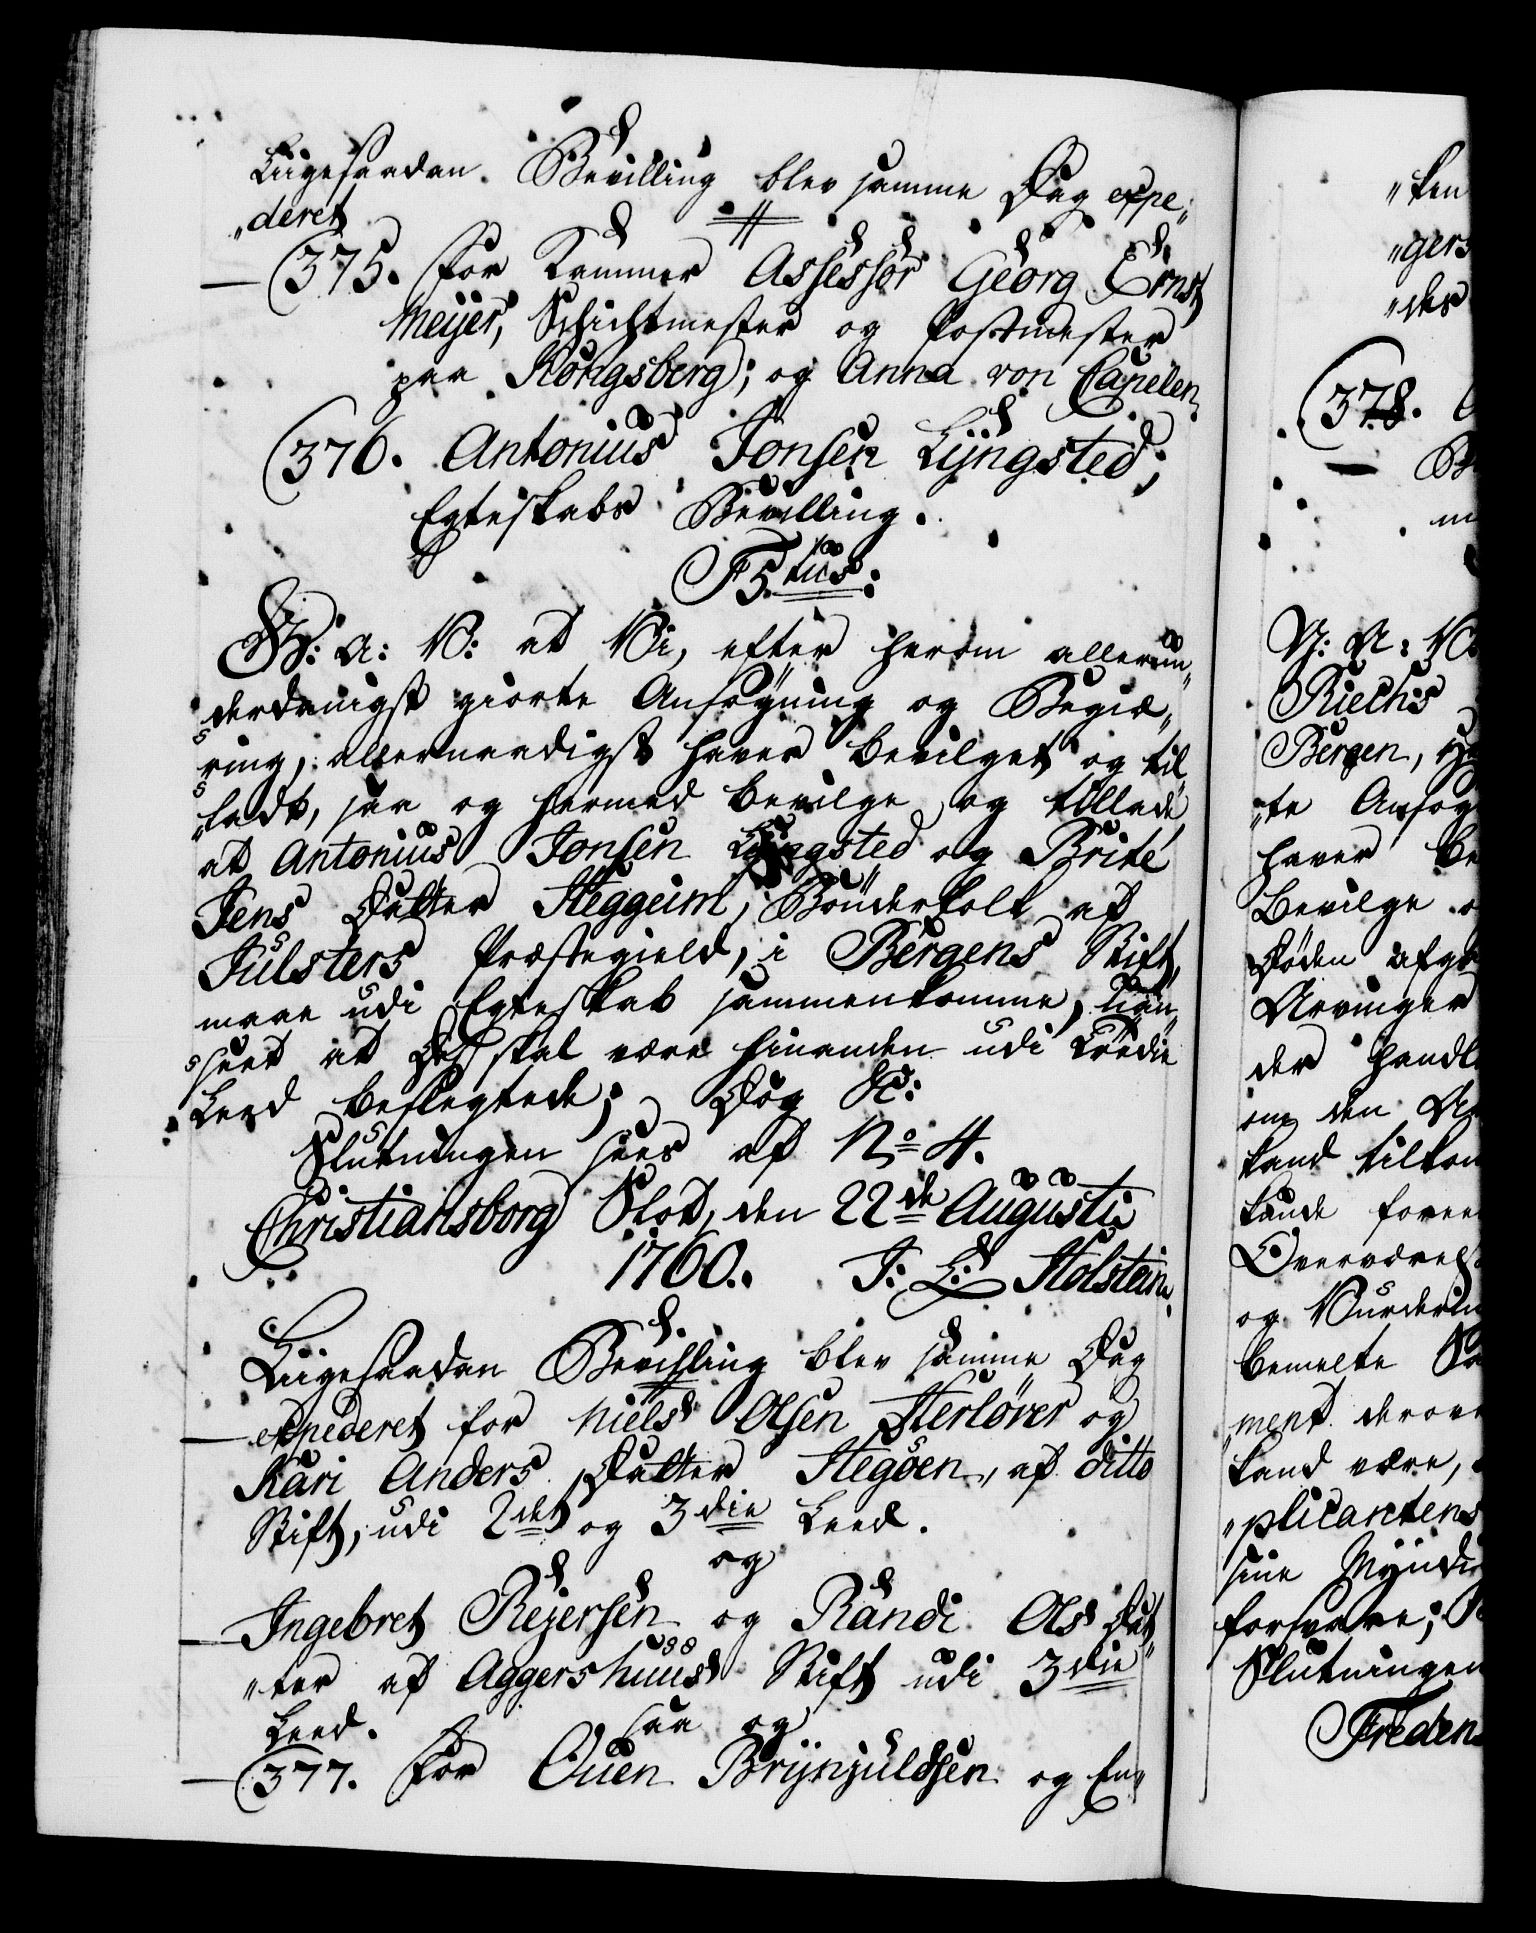 Liigesaadan Bevilling blev samme Dag expe„
„deret
(375. for Kammer Assessor Georg Ernst
Meijer, Schichtmester og Postmester
paa Kongsberg; og Anna von Capelen
(376. Antonius Jonsen Lijngsted;
Egteskabs Bevilling.
F5.tus:
G: A: V: at Vi, efter herom allerun„
derdanigst giorte Ansøgning og Begiæ„
ring, allernaadigst haver bevilget og til„
„ladt, saa og hermed bevilge og tillade
at Antonius Jonsen Lijngsted og Brite
Jens Datter Heggeim, Bønderfolk af
Julsters Præstegield, i Bergens Stift,
maae udi Egteskab sammenkomme, uan„
seet at De skal være hinanden udi Tredie
Leed beslegtede; Dog &c:
Slutningen sees af No 4.
Christiansborg Slot, den 22de Augusti
1760. J: L: Holstein.
Liigesaadan Bevilling blev samme Dag
expederet for Niels Olsen Herløver og
Kari Anders Datter Hegøen, af ditto
Stift, udi 2det og 3die Leed.
og
Ingebret Rejersen og Randi Ols Dat„
„ter af Aggershuus Stift udi 3die
Leed. saa og
(377. for Ouen Brijnjuldsen og En„
„ken
„gers
„des
(378.
Riechs
Bergen,
„te Ansøg
haver be
Bevilge
Døden afg
Arvinger
der handl
om den
kand tilkom
kunde foree
Overværels
og Vurderin
bemelte
ment derove
kand være,
„plicantens
sine Myndi
forsvare;
Slutningen
Freden